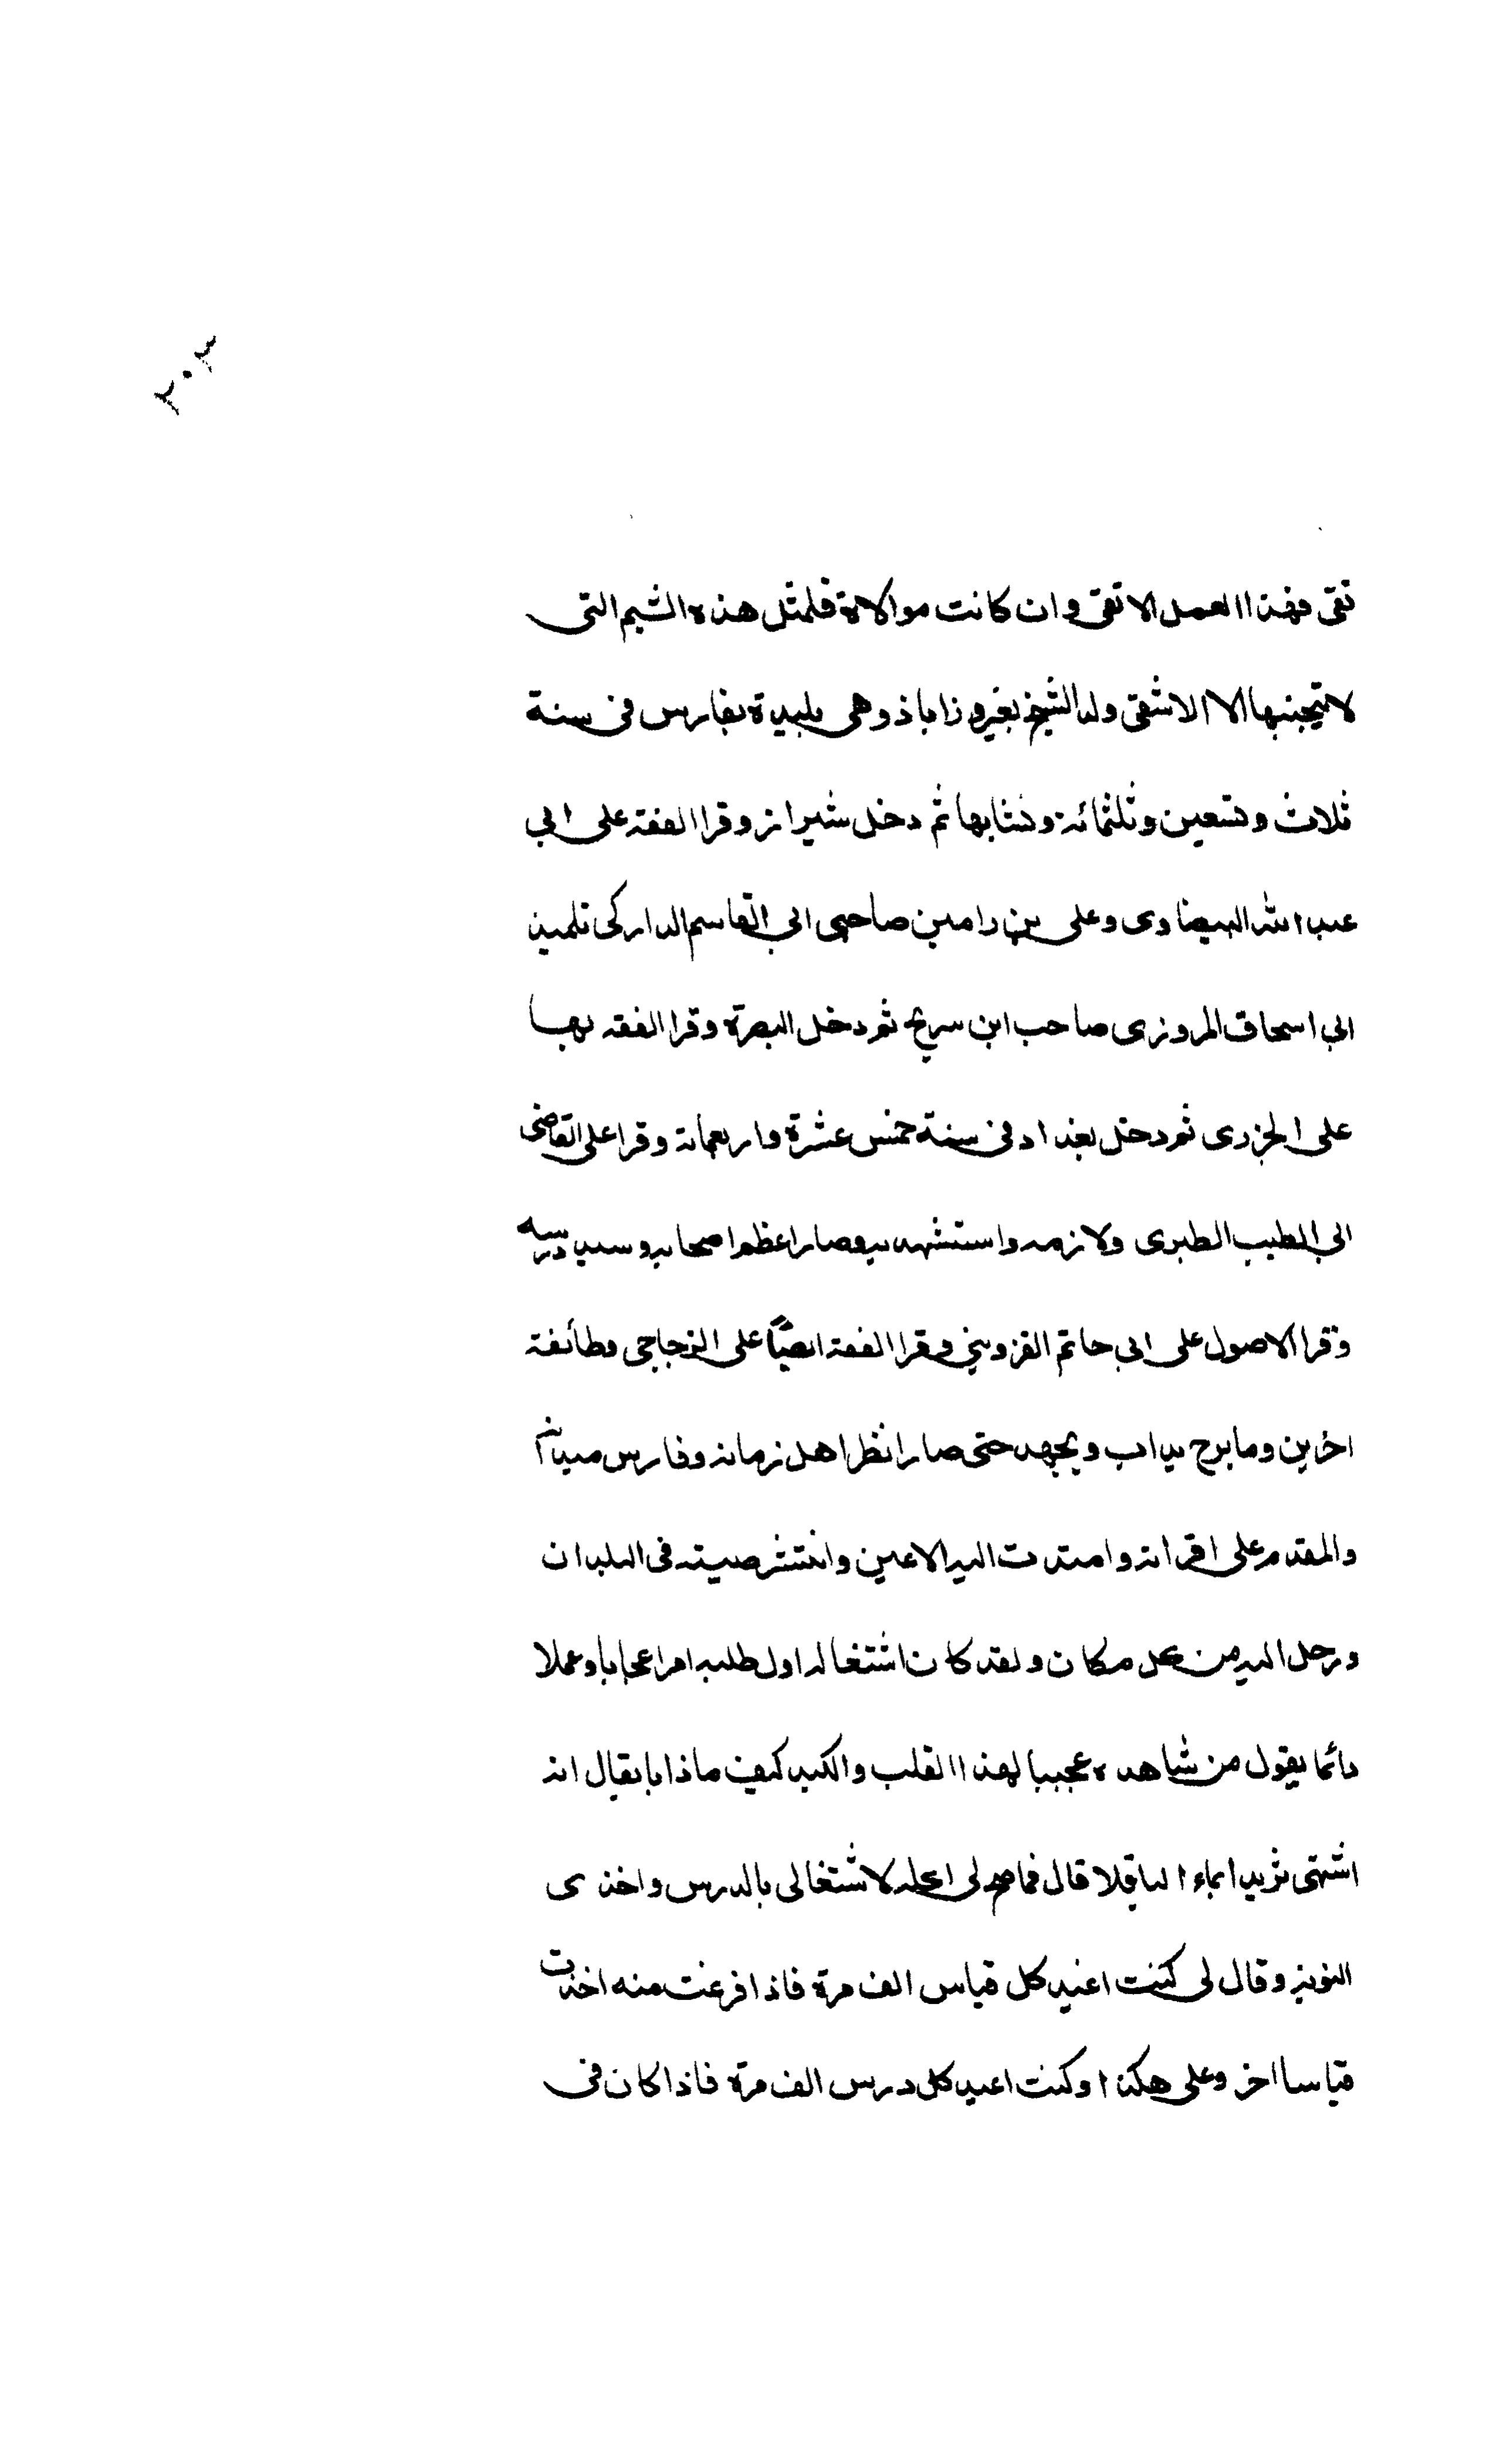 ٢٠٢
تقى فهذا العمل الاتقى وان كانت موالاة فلمثل هذه الشيم التى
لا يتجنبها الا الاشقى ولد الشيخ بفيروزاباذ وهى بليدة بفارس فى سنة
ثلاث وتسعين وثلثمائة ونشا بها ثم دخل شيراز وقرا الفقه على ابى
عبد الله البيضاوى وعلى بن رامين صاحبى ابى القاسم الداركى تلميذ
ابى اسحاق المروزى صاحب ابن سريج ثم دخل البصرة وقرا الفقه بها
على الجزرى ثم دخل بغداد فى سنة خمس عشرة واربعماية وقرا على القاضى
ابى الطيب الطبرى ولازمه واستشهر به وصار اعظم اصحابه وسيد درسه
وقرا الاصول على ابى حاتم القزوينى وقرا الفقه ايضًا على الزجاجى وطائفة
اخرين وما برح يداب ويجهد حتى صار انظر اهل زمانه وفارس ميدانه
والمقدم على اقرانه وامتدت اليه الاعين وانتشر صيته فى البلدان
ورحل اليه من كل مكان ولقد كان اشتغاله اول طلبه امرا عجابا وعملا
دائما يقول من شاهده عجيبا لهذا القلب والكبد كيف ماذابا يقال انه
اشتهى ثريدا بماء الباقلا قال فما صح لى اكله لاشتغالى بالدرس واخذى
النوبة وقال لى كنت اعيد كل قياس الف مرة فاذا فرغت منه اخذت
قياسا اخر وعلى هكذا وكنت اعيد كل درس الف مرة فاذا كان فى